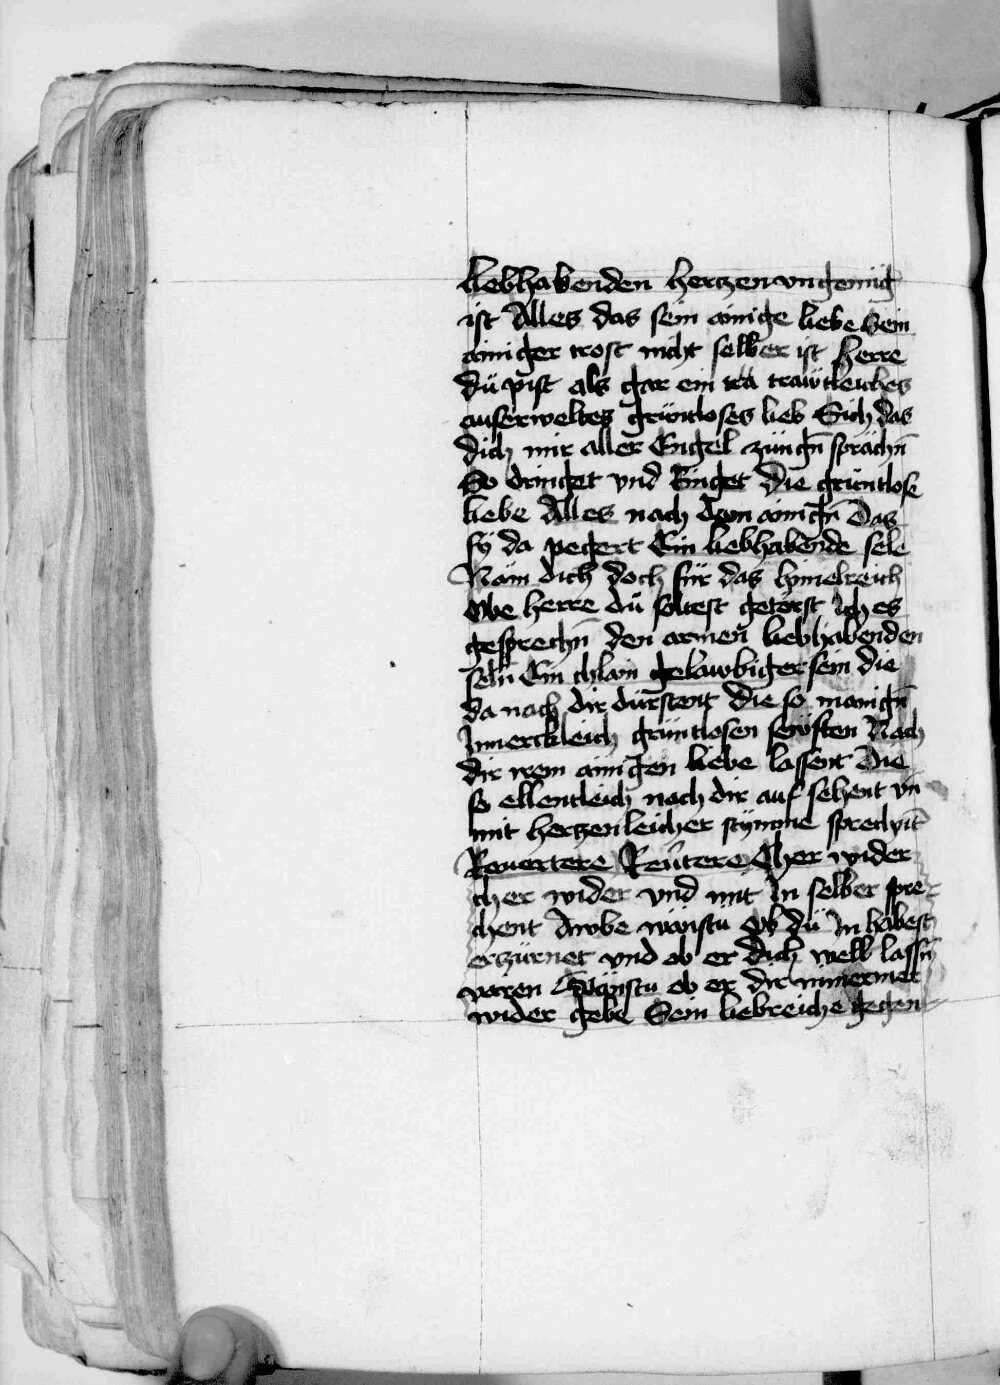 liebhabenden hertzen vngenug̈
ist Alles das sein ainige liebe Sein
ainiger trost nicht selber ist Herre
dü pist als gar ein tra trawtleiches
auserweltes grüntloses lieb Sich das
dich mir aller Engel zünḡn sprächn̄
So dringet vnd Ringet Die grüntlose
liebe Alles nach dem ainiḡn Das
sÿ da pegert Ein liebhabende sele
Näm dich doch für das himelreich
Owe herre dü soltest getörst ich es
gesprechn̄ den armen̄ liebhabenden
seln̄ Ein chlain gelawbiger sein die
da nach dir dürstent Die so maniḡn
Jnnerckleich grüntlosen sewften Nach
dir irem ainigen liebe lassent Die
so ellentleich nach dir auf sehent vn̄
mit hertzenleicher stÿmme sprechnt̄
Reuertere Reu̅tere Cher wider
cher wider vnd mit In selber spre=
chent Awbe wänstu Ob dü In habest
erzürnet vnd ob er dich well lassn̄
varen Wänstu ob er dir nimermer
wider gebe Sein liebreiche gegen=